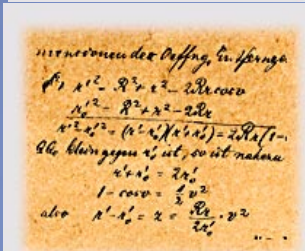 mensionen der Oeffng, Entfernga
r'² = R² + r² - 2Rr cos v
r₀'² = R² + r² - 2Rr
r'² - r₀'² = (r' - r₀')(r' + r₀') = 2Rr(1-
klein gegen r₀' ist, so ist nahezu
r' + r₀' = 2r₀'
1 - cos v = ½ v²
also r' - r₀' = z = Rr/2r₀' · v²